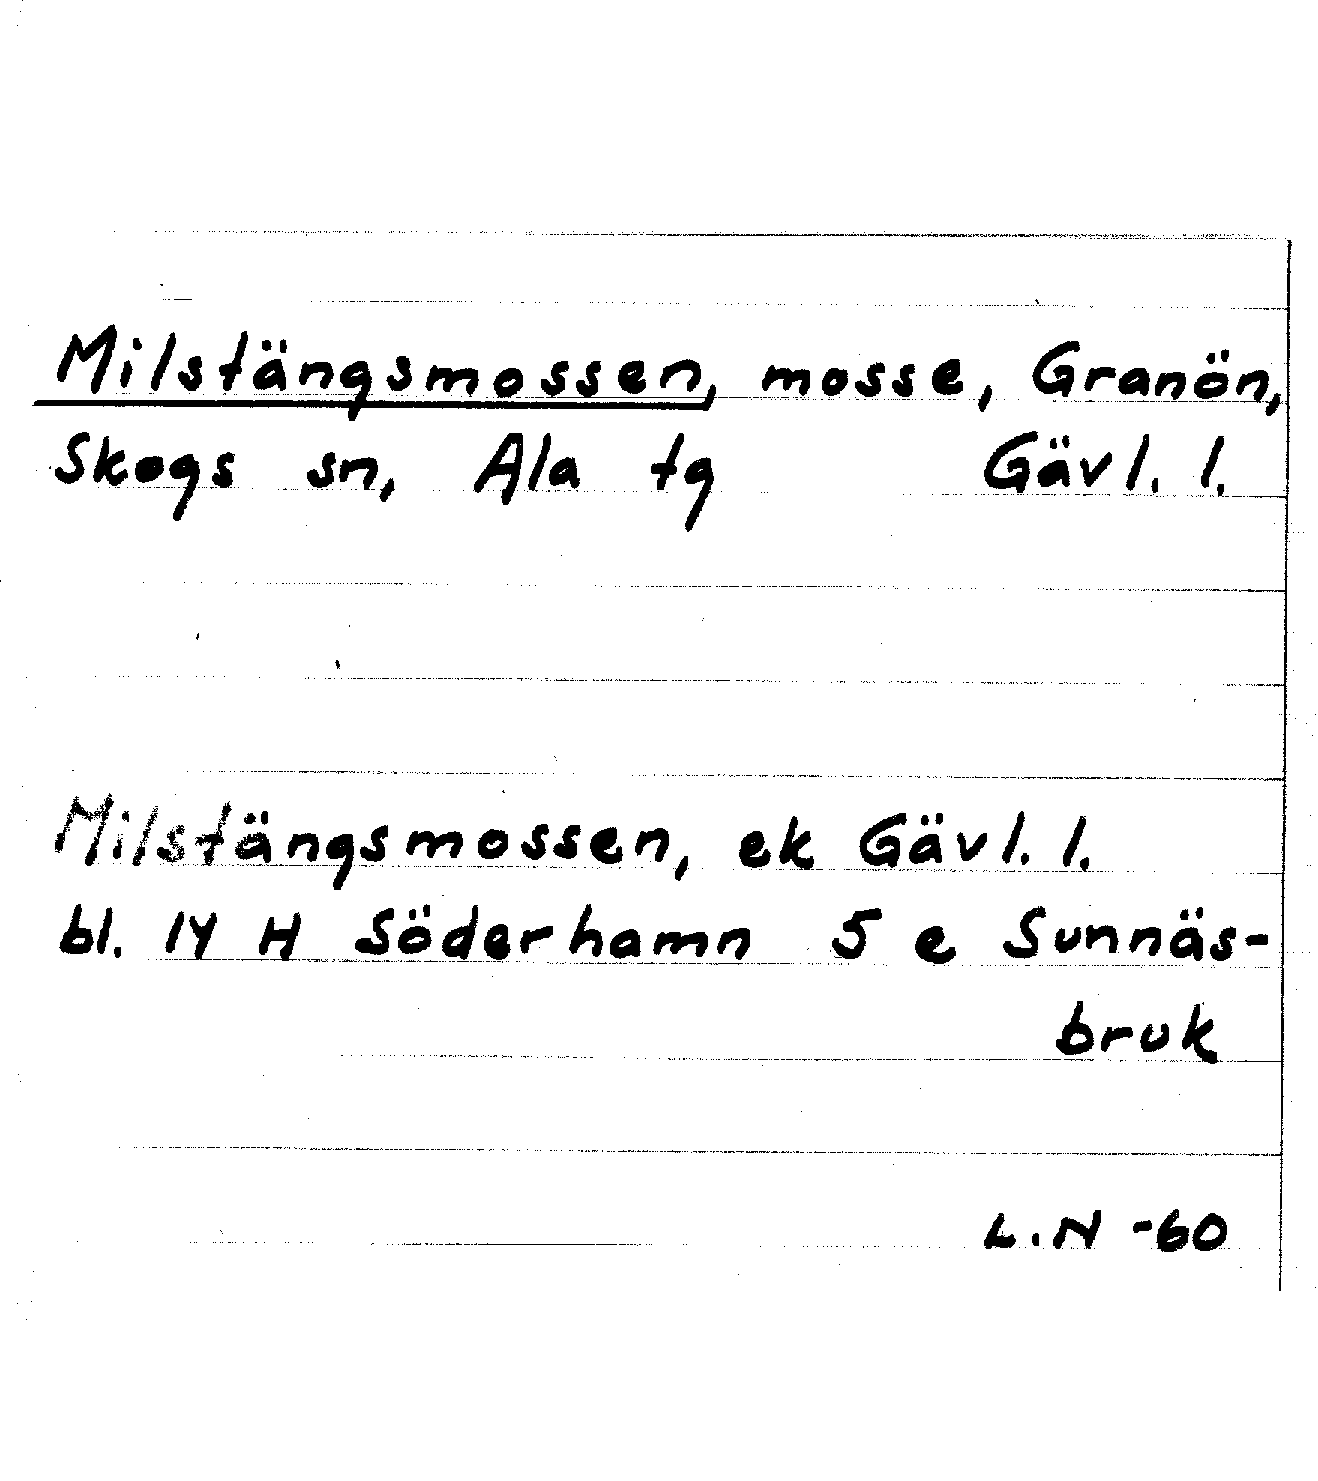 Milstängsmossen, mosse, Granön,
Skogs sn, Ala tg Gävl. l.
Milstängsmossen, ek Gävl. l.
bl. 14 H Söderhamn 5 e Sunnäs-
bruk
L.N -60